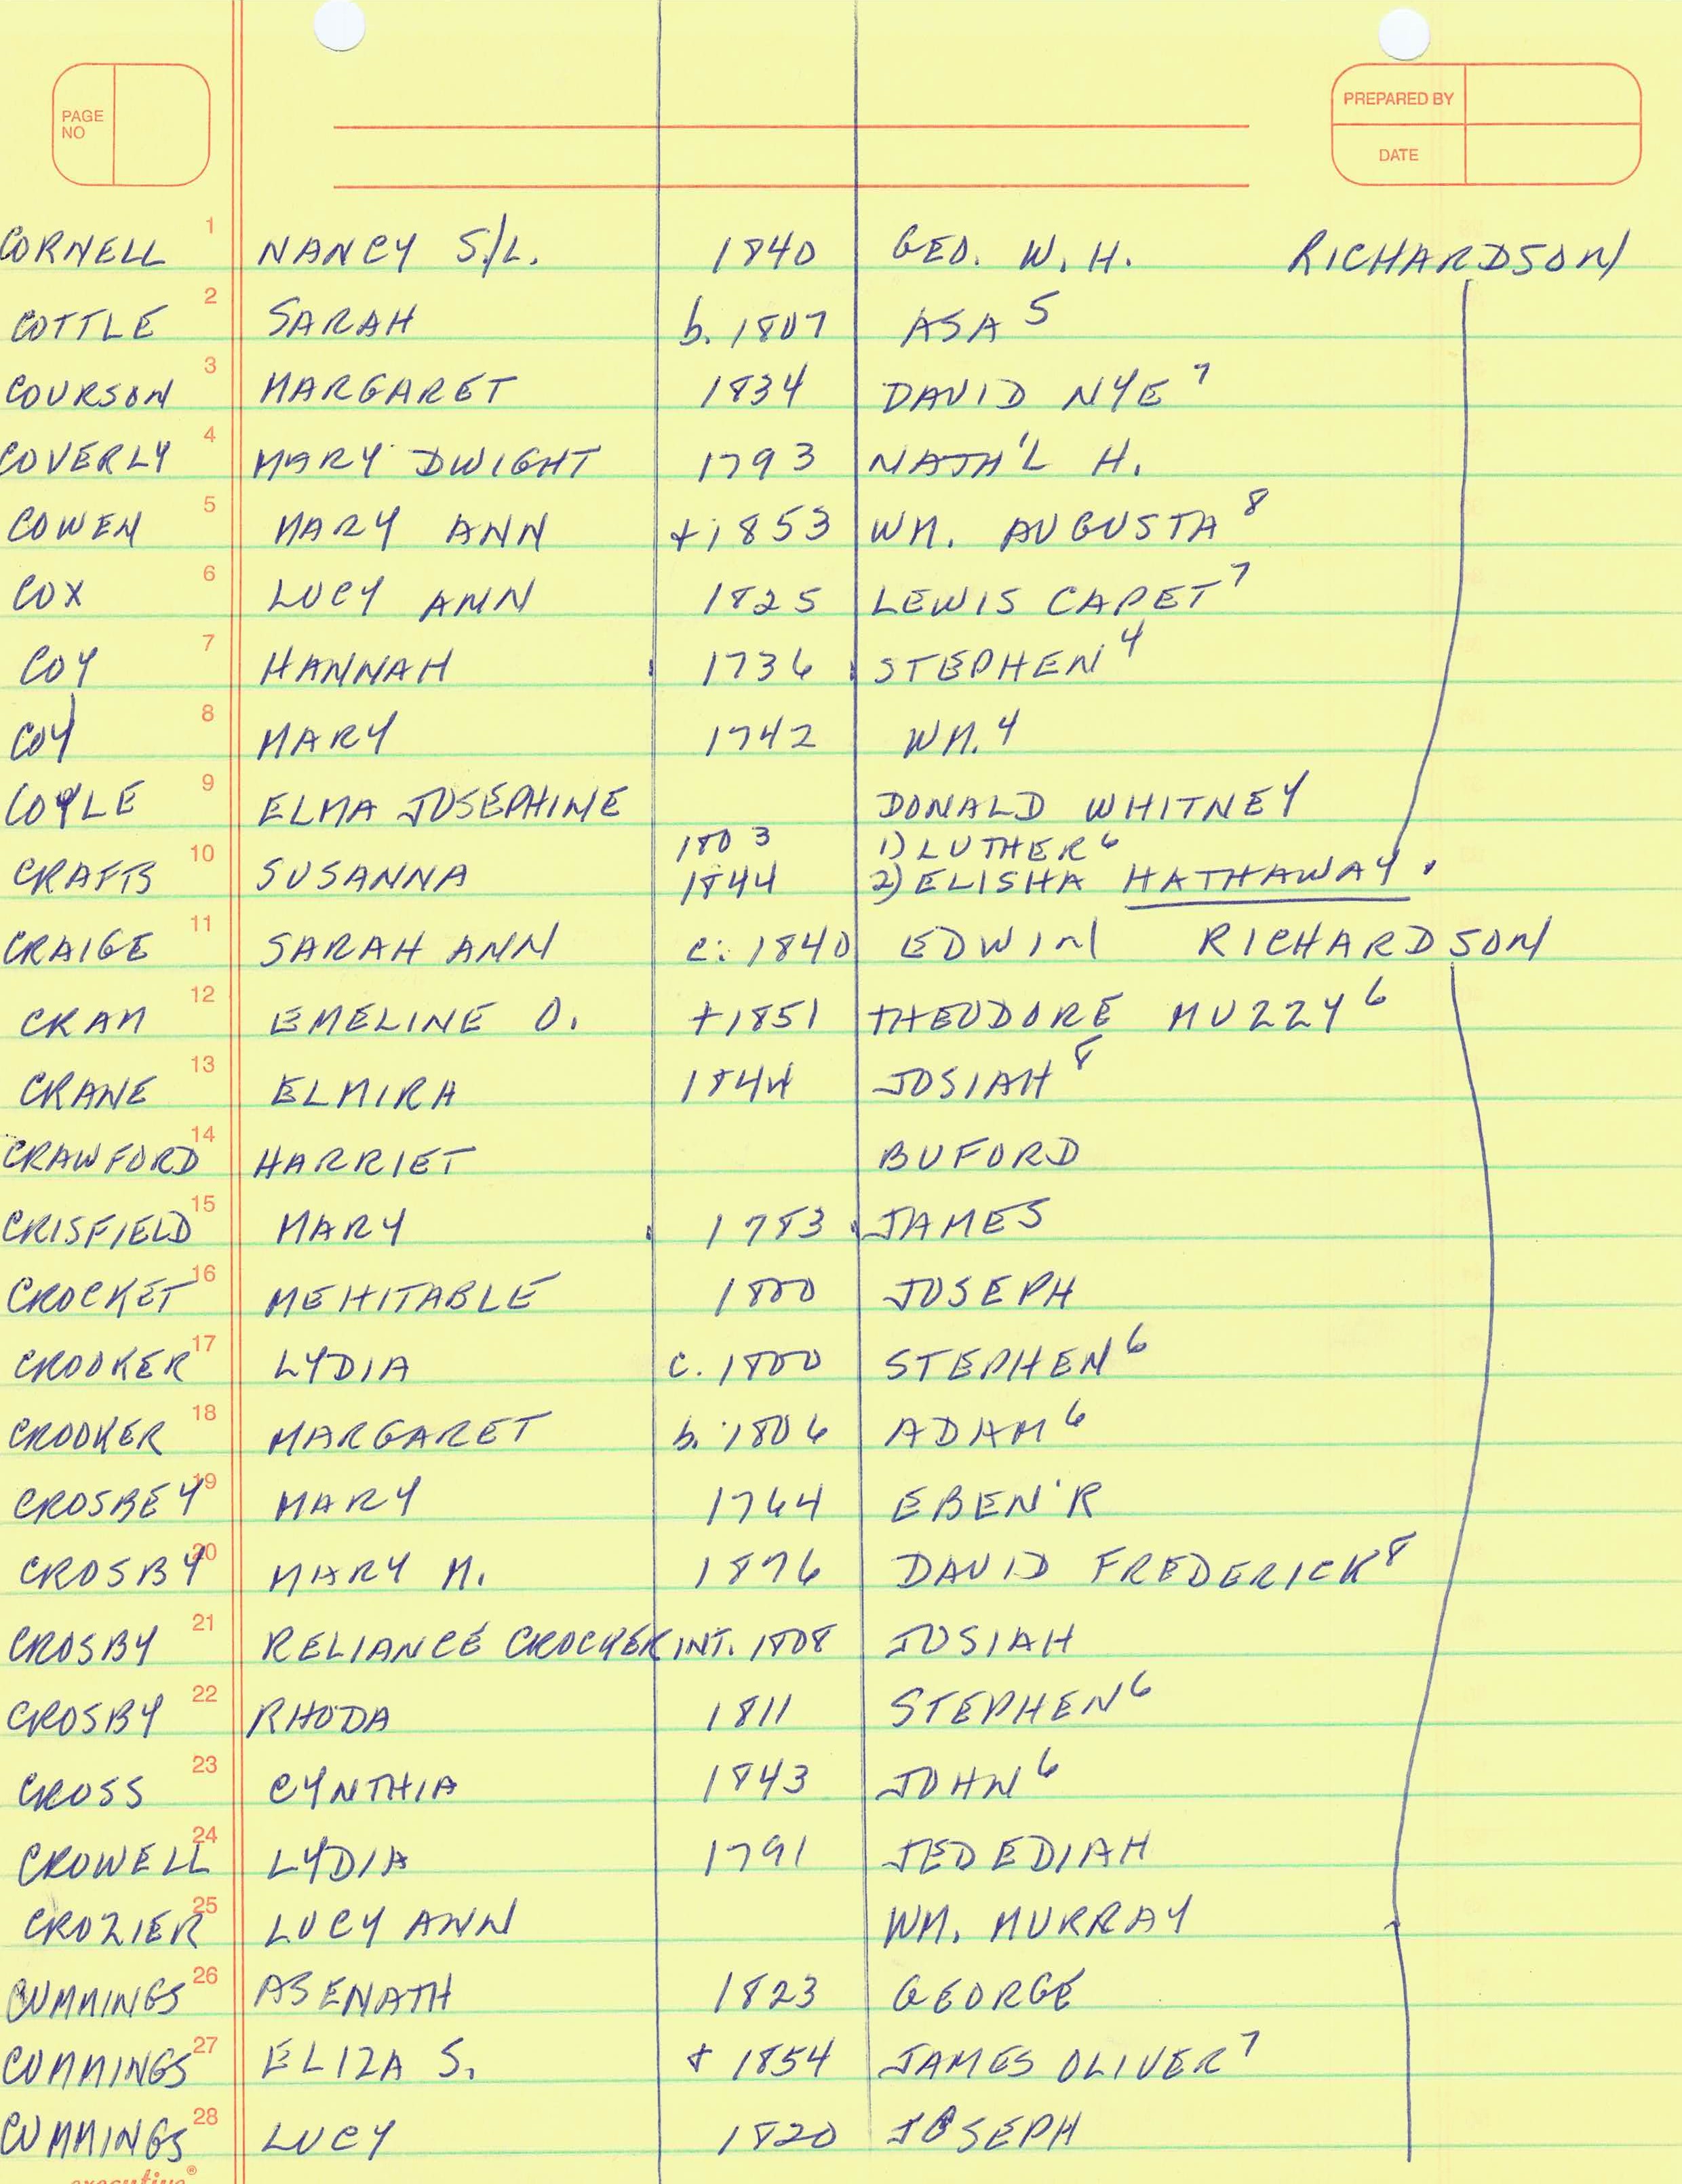 PAGE NO
PREPARED BY
DATE
CORNELL 1 NANCY S./L. 1840 GEO. W. H. RICHARDSON
COTTLE 2 SARAH b. 1807 ASA 5
COURSON 3 MARGARET 1834 DAVID NYE 7
COVERLY 4 MARY DWIGHT 1793 NATH'L H.
COWEN 5 MARY ANN +1853 WM. AUGUSTA 8
COX 6 LUCY ANN 1825 LEWIS CAPET 7
COY 7 HANNAH 1736 STEPHEN 4
COY 8 MARY 1742 WM. 4
COYLE 9 ELMA JOSEPHINE DONALD WHITNEY
1803 1) LUTHER 6
CRAFTS 10 SUSANNA 1844 2) ELISHA HATHAWAY.
CRAIGE 11 SARAH ANN c. 1840 EDWIN RICHARDSON
CRAM 12 EMELINE O. +1851 THEODORE MUZZY 6
CRANE 13 ELMIRA 1844 JOSIAH 8
CRAWFORD 14 HARRIET BUFORD
CRISFIELD 15 MARY 1783 JAMES
CROCKET 16 MEHITABLE 1800 JOSEPH
CROOKER 17 LYDIA c. 1800 STEPHEN 6
CROOKER 18 MARGARET b. 1806 ADAM 6
CROSBEY 19 MARY 1764 EBEN'R
CROSBY 20 MARY M. 1876 DAVID FREDERICK 8
CROSBY 21 RELIANCE CROCKER INT. 1808 JOSIAH
CROSBY 22 RHODA 1811 STEPHEN 6
CROSS 23 CYNTHIA 1843 JOHN 6
CROWELL 24 LYDIA 1791 JEDEDIAH
CROZIER 25 LUCY ANN WM. MURRAY
CUMMINGS 26 ASENATH 1823 GEORGE
CUMMINGS 27 ELIZA S. + 1854 JAMES OLIVER 7
CUMMINGS 28 LUCY 1820 JOSEPH
executive®